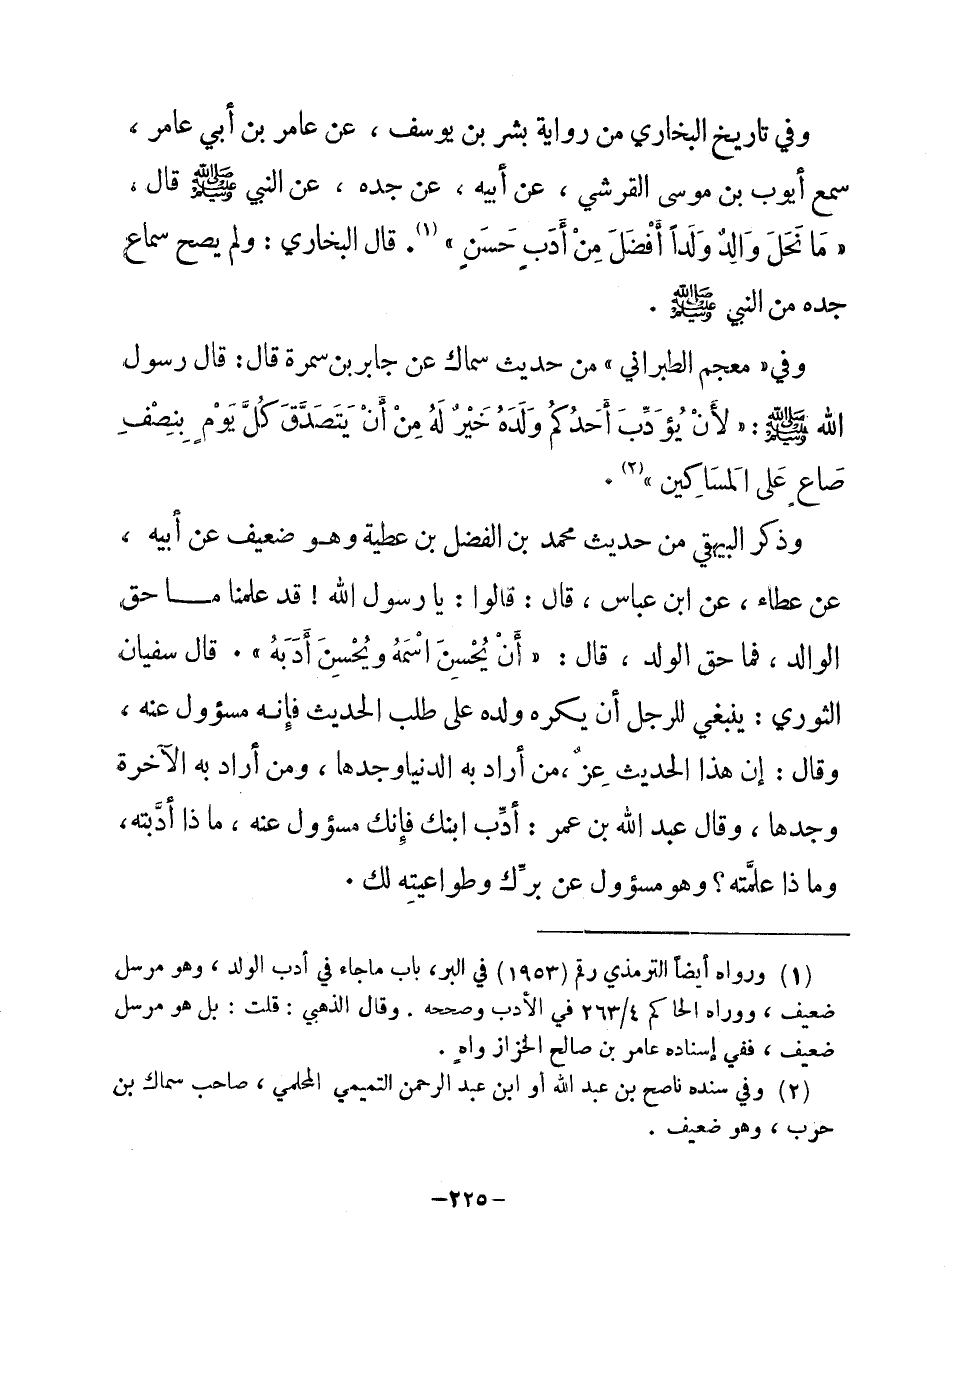 وفي تاريخ البخاري من رواية بشر بن يوسف ، عن عامر بن أبي عامر ،
سمع أيوب بن موسى القرشي ، عن أبيه ، عن جده ، عن النبي ﷺ قال ،
« مَا نَحَلَ وَالِدٌ وَلَداً أَفْضَلَ مِنْ أَدَبٍ حَسَنٍ » (١). قال البخاري : ولم يصح سماع
جده من النبي ﷺ .
وفي « معجم الطبراني » من حديث سماك عن جابر بن سمرة قال : قال رسول
الله ﷺ : « لأَنْ يُؤَدِّبَ أَحَدُكُمْ وَلَدَهُ خَيْرٌ لَهُ مِنْ أَنْ يَتَصَدَّقَ كُلَّ يَوْمٍ بِنِصْفِ
صَاعٍ عَلى المَسَاكِين » (٢) .
وذكر البيهقي من حديث محمد بن الفضل بن عطية وهو ضعيف عن أبيه ،
عن عطاء ، عن ابن عباس ، قال : قالوا : يا رسول الله ! قد علمنا مـا حق
الوالد ، فما حق الولد ، قال : « أَنْ يُحْسِنَ اسْمَهُ ويُحْسِنَ أَدَبَهُ » . قال سفيان
الثوري : ينبغي للرجل أن يكره ولده على طلب الحديث فإنه مسؤول عنه ،
وقال : إن هذا الحديث عِزٌ ، من أراد به الدنيا وجدها ، ومن أراد به الآخرة
وجدها ، وقال عبد الله بن عمر : أدِّب ابنك فإنك مسؤول عنه ، ماذا أدَّبته ،
وماذا علَّمته ؟ وهو مسؤول عن برِّك وطواعيتِه لك .
(١) ورواه أيضاً الترمذي رقم (١٩٥٣) في البر ، باب ماجاء في أدب الولد ، وهو مرسل
ضعيف ، ووراه الحاكم ٢٦٣/٤ في الأدب وصححه . وقال الذهبي : قلت : بل هو مرسل
ضعيف ، ففي إسناده عامر بن صالح الخزاز واهٍ .
(٢) وفي سنده ناصح بن عبد الله أو ابن عبد الرحمن التميمي المحلمي ، صاحب سماك بن
حرب ، وهو ضعيف .
-٢٢٥-